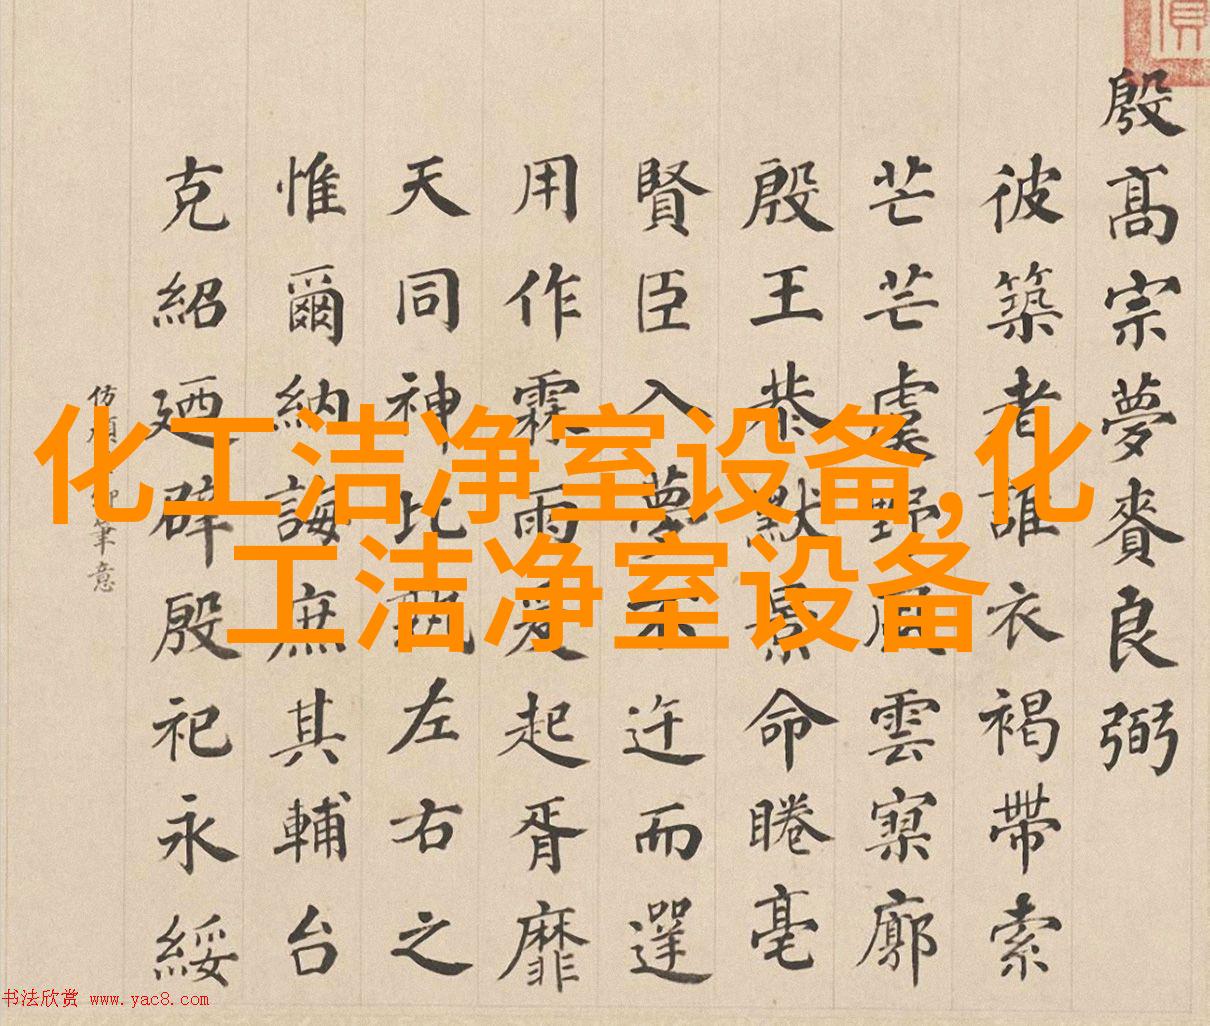 殷髙宗夢賚良弼
彼築者誰衣褐帶索
芒芒虞野風雲寥廓
殷王恭默景命睠亳
賢臣入夢不迕而
用作霖雨爰起胥靡
天同神比左右之
惟爾納誨庶其輔台
克紹廼辟殷祀永綏
仿筆意
化工洁净室设备,化
工洁净室设备
书法欣赏 www.yac8.com